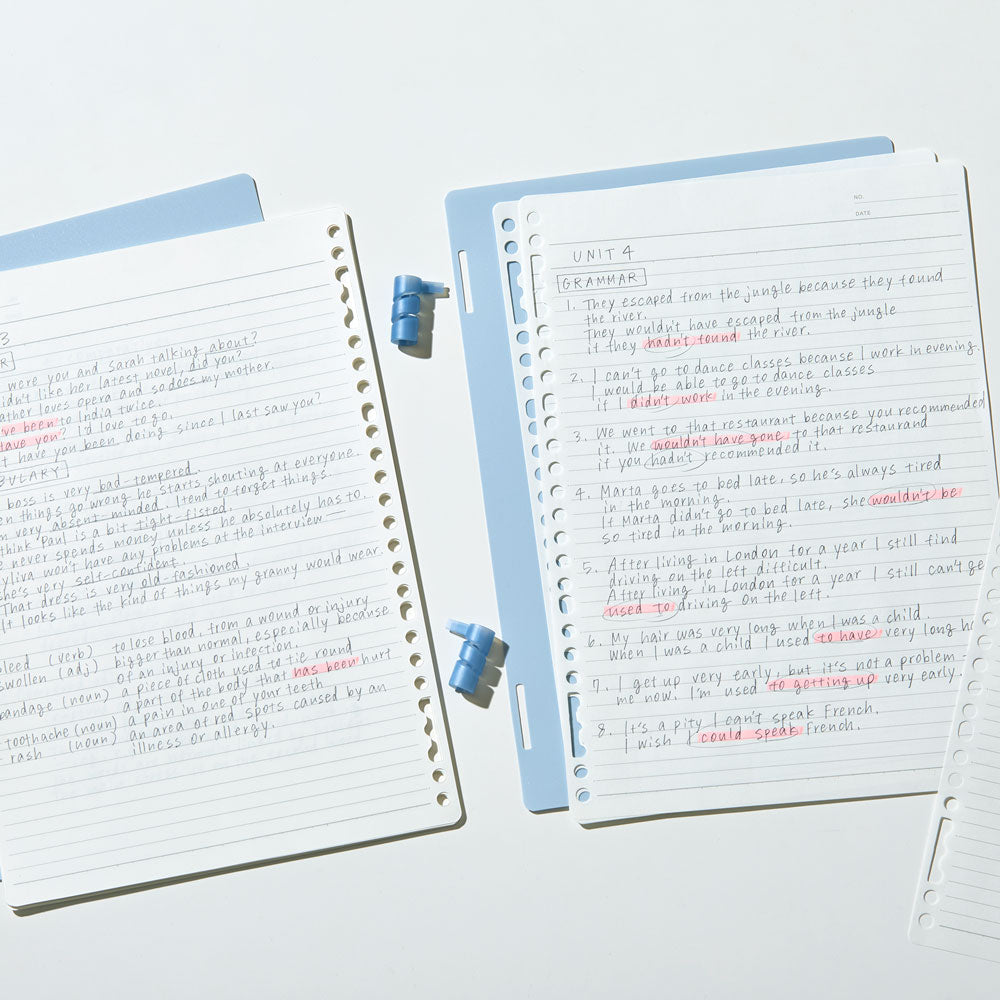 3
R
were you and sarah talking about?
didn't like her latest novel, did you?
father loves opera and so does my mother.
've been to India twice.
Have you? I'd love to go.
t have you been doing since I last saw you?
BULARY
boss is very bad-tempered.
en things go wrong he starts shouting at everyone.
m very absent-minded. I tend to forget things.
think Paul is a bit tight-fisted.
e never spends money unless he absolutely has to.
yliva won't have any problems at the interview
she's very self-confident.
That dress is very old-fashioned.
It looks like the kind of things my granny would wear.
bleed (verb) to lose blood, from a wound or injury
swollen (adj) bigger than normal, especially because
of an injury or infection.
bandage (noun) a piece of cloth used to tie round
a part of the body that has been hurt
toothache (noun) a pain in one of your teeth
rash (noun) an area of red spots caused by an
illness or allergy.
NO.
DATE
UNIT 4
GRAMMAR
1. They escaped from the jungle because they found
the river.
They wouldn't have escaped from the jungle
if they hadn't found the river.
2. I can't go to dance classes because I work in evening.
I would be able to go to dance classes
if I didn't work in the evening.
3. We went to that restaurant because you recommended
it. We wouldn't have gone to that restaurand
if you hadn't recommended it.
4. Marta goes to bed late, so he's always tired
in the morning.
If Marta didn't go to bed late, she wouldn't be
so tired in the morning.
5. After living in London for a year I still find
driving on the left difficult.
After living in London for a year I still can't ge
used to driving on the left.
6. My hair was very long when I was a child.
when I was a child I used to have very long h
7. I get up very early, but it's not a problem
me now. I'm used to getting up very early.
8. It's a pity I can't speak French.
I wish I could speak French.